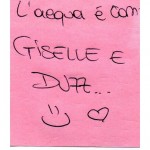 L'acqua è com
GISELLE E
DUZZ...